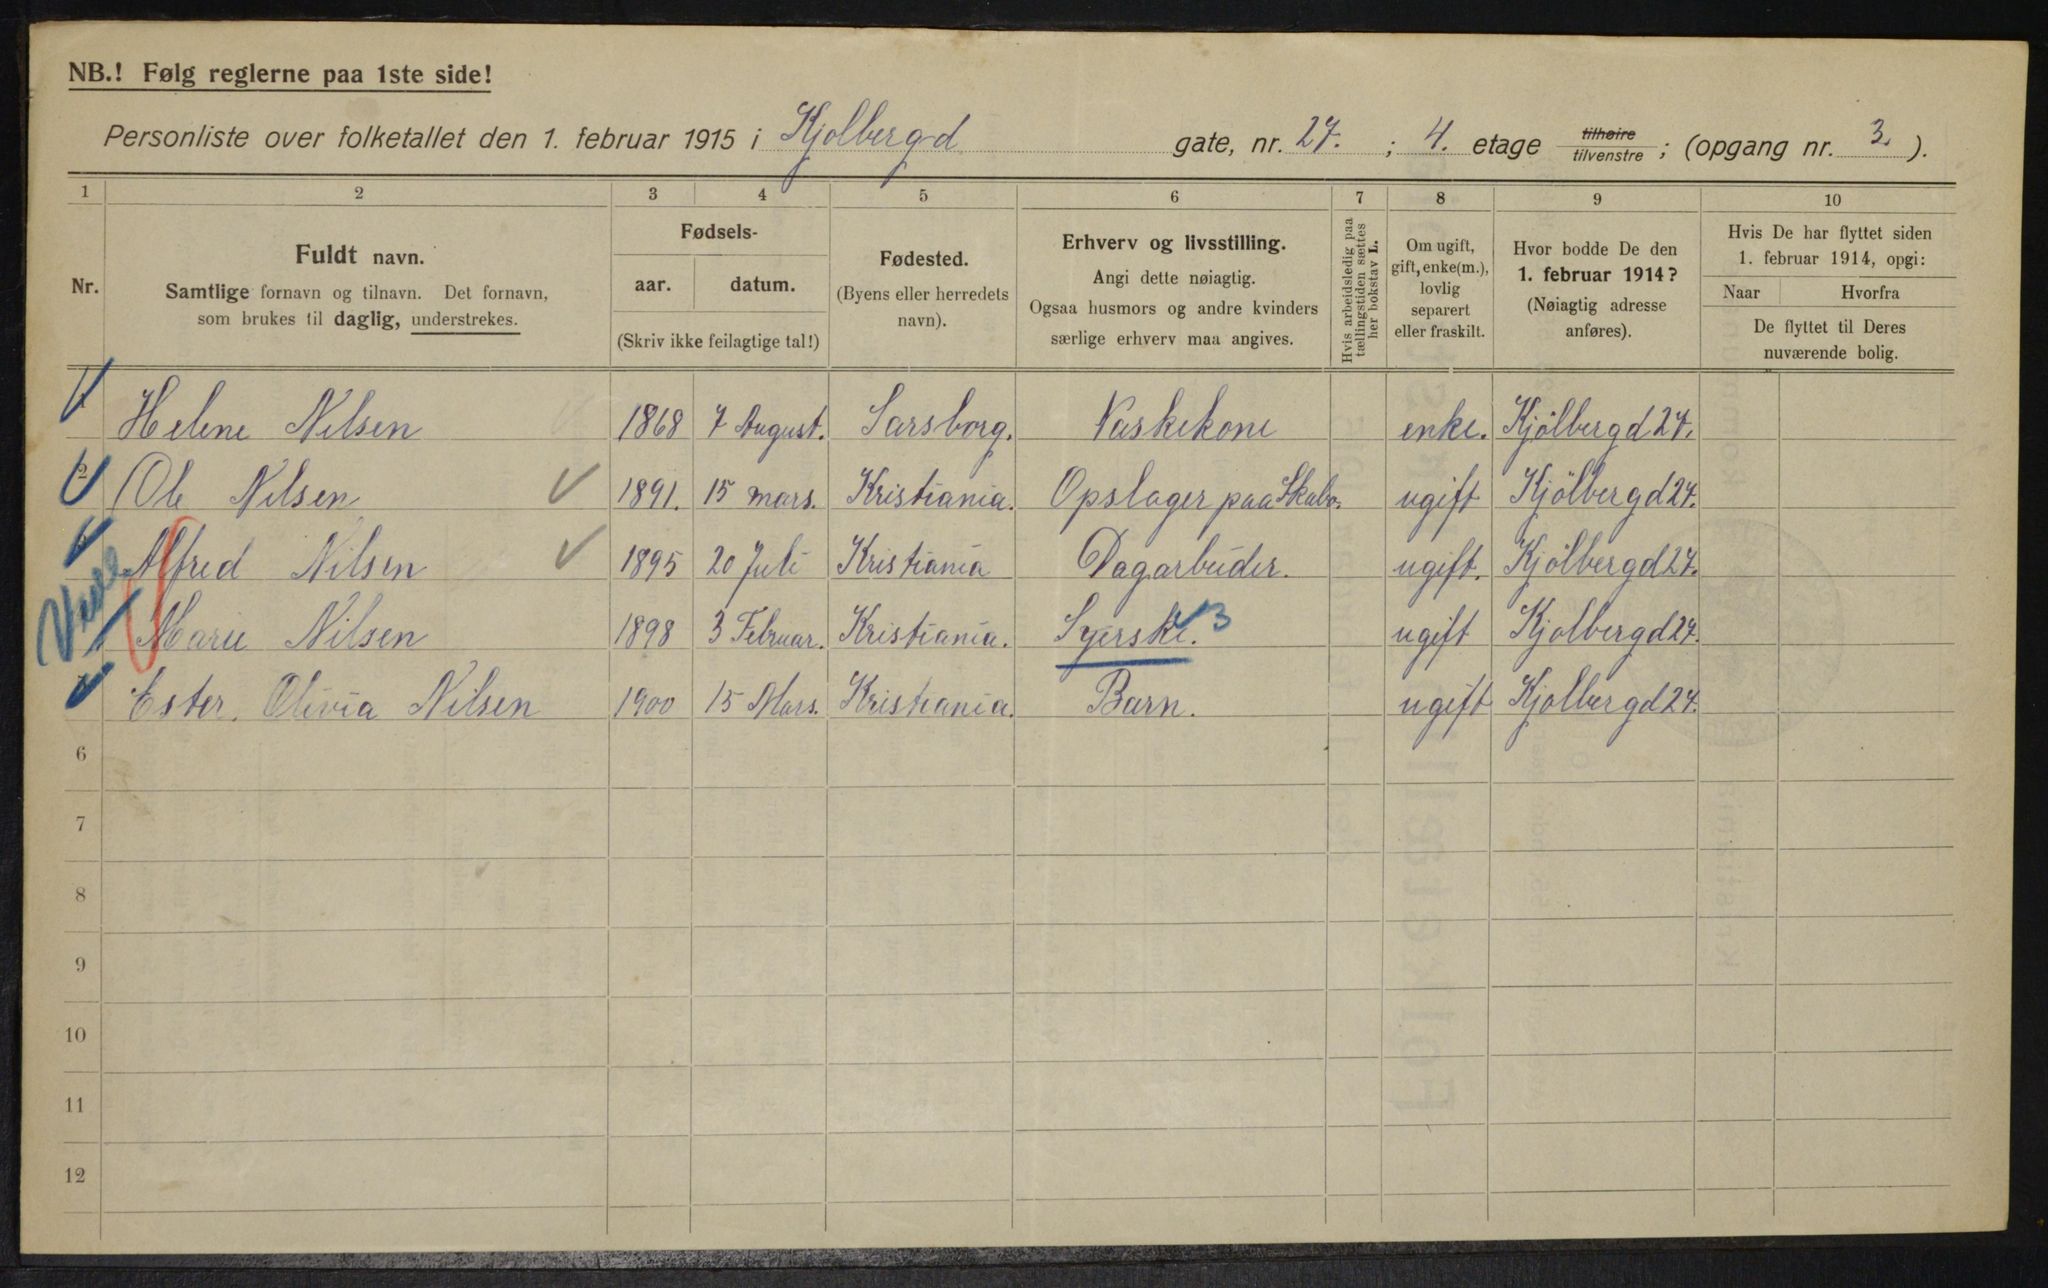 NB.! Følg reglerne paa 1ste side!
Personliste over folketallet den 1. februar 1915 i Kjolbergd gate, nr. 27. ; 4. etage tilhøire tilvenstre ; (opgang nr. 3. ).
1 2 3 4 5 6 7 8 9 10
Nr.
Fuldt navn.
Samtlige fornavn og tilnavn. Det fornavn,
som brukes til daglig, understrekes.
Fødsels-
aar. datum.
(Skriv ikke feilagtige tal!)
Fødested.
(Byens eller herredets
navn).
Erhverv og livsstilling.
Angi dette nøiagtig.
Ogsaa husmors og andre kvinders
særlige erhverv maa angives.
Hvis arbeidsledig paa
tællingstiden sættes
her bokstav L.
Om ugift,
gift, enke(m.),
lovlig
separert
eller fraskilt.
Hvor bodde De den
1. februar 1914?
(Nøiagtig adresse
anføres).
Hvis De har flyttet siden
1. februar 1914, opgi:
Naar Hvorfra
De flyttet til Deres
nuværende bolig.
Helene Nilsen 1868 7 August. Sarsborg. Vaskekone enke. Kjölbergd 27.
2 Ole Nilsen 1891. 15 mars. Kristiania. Opslager paa Skabo. ugift Kjölbergd 27.
Alfred Nilsen 1895 20 Juli Kristiania Dagarbeider. ugift. Kjölbergd 27.
Marie Nilsen 1898 3 Februar. Kristiania. Syerske. 3 ugift Kjolbergd 27.
Ester. Olivia Nilsen 1900 15 Mars. Kristiania. Barn. ugift Kjolbergd 27.
6
7
8
9
10
11
12